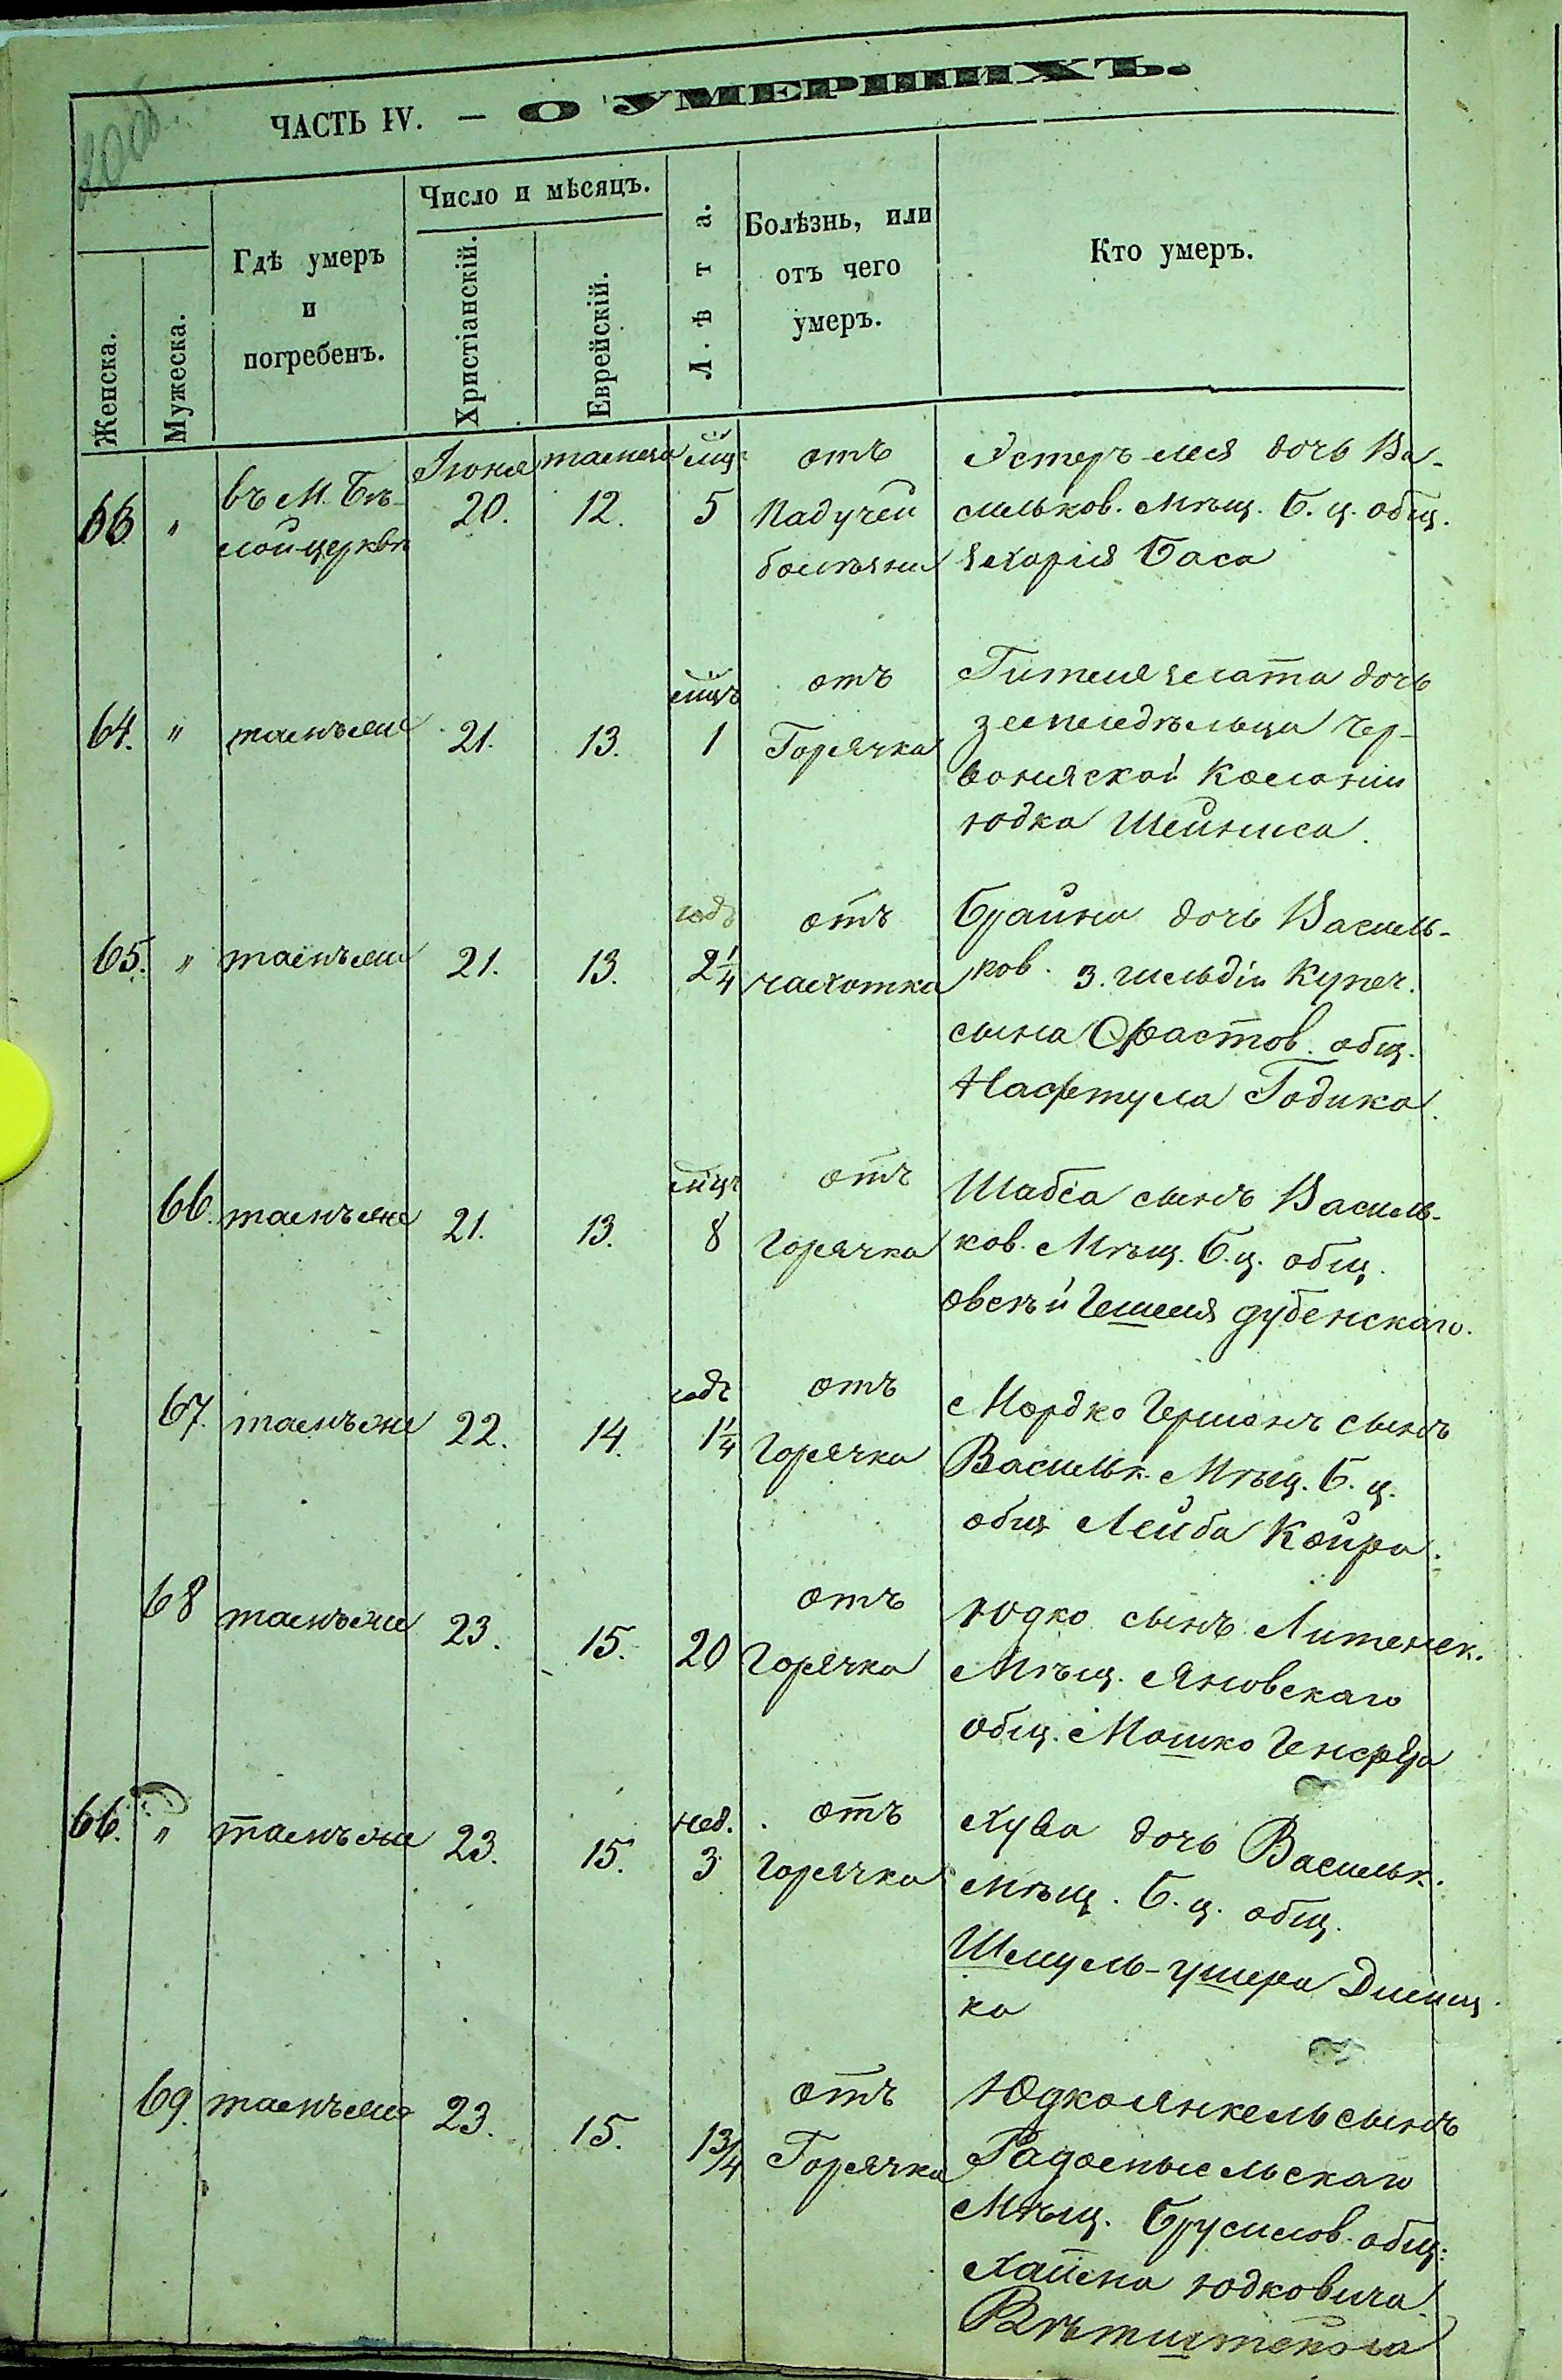 200об.
ЧАСТЬ IV. — О УМЕРШИХЪ.
Женска.
Мужеска.
Гдѣ умеръ
и
погребенъ.
Число и мѣсяцъ.
Христіанскій.
Еврейскій.
Лѣта.
Болѣзнь, или
отъ чего
умеръ.
Кто умеръ.
Іюня тамуза мцъ отъ Эстеръ-лея дочь Ва-
63 " въ М. Бѣ- 20. 12. 5 Падучей сильков. Мѣщ. Б. ц. общ.
лойцеркви болѣзни Захарія Баса
мцъ отъ Гителя злата дочь
64. " тамъже 21. 13. 1 Горячка земледѣльца Чер-
вонянской Колоніи
юдка Шейниса.
годъ отъ Брайна дочь Василь-
65. " тамъже 21. 13. 2 1/4 чахотка ков. 3. гильдіи Купеч.
сына Фастов. общ.
Нафтула Годика.
мцъ отъ Шабса сынъ Василь-
66. тамъже 21. 13. 8 Горячка ков. Мѣщ. Б. ц. общ.
овсѣй Гешеля дубенскаго.
годъ отъ Мордко Гершонъ сынъ
67. тамъже 22. 14. 1 1/4 Горячка Васильк. Мѣщ. Б. ц.
общ Лейба Койра.
отъ Юдко сынъ Литинск.
68 тамъже 23. 15. 20 Горячка Мѣщ. Яновскаго
общ. Мошко
нед. отъ Хува дочь Васильк.
66. " тамъже 23. 15. 3 Горячка Мѣщ. Б. ц. общ.
Шмуль-ушера
ка
отъ Юдкоянкель сынъ
69. тамъже 23. 15. 1 3/4 Горячка Радомысльскаго
Мѣщ. Брусилов. общ.
Хаима юдковича